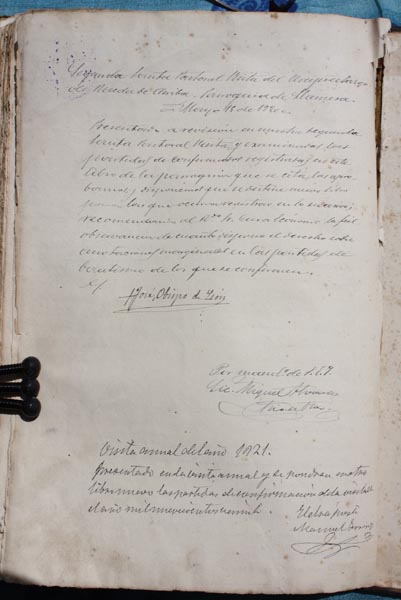 Segunda Santa Pastoral Visita del Arciprestazgo
de Rueda de Arriba. Parroquia de
Mayo 18 de 192
Presentado a revisión en nuestra segunda
Santa Pastoral Visita, y examinadas las
partidas de confirmados registradas en este
libro de la parroquia que se cita, las apro-
bamos, y disponemos que se destine nuevo libro
para las que ocurra registrar en lo sucesivo,
recomendamos al Rdo. Sr. Cura Ecónomo la fiel
observancia de cuanto dispone el derecho sobre
anotaciones marginales en las partidas de
bautismo de los que se confirmen
† José, Obispo de León
Por mand. de S. E. I.
Lic. Miguel
Visita anual del año 1921.
Presentado en la visita anual y se pondrán en otro
libro nuevo las partidas de confirmación de la visita
del año mil novecientos
El Arcipreste
Manuel